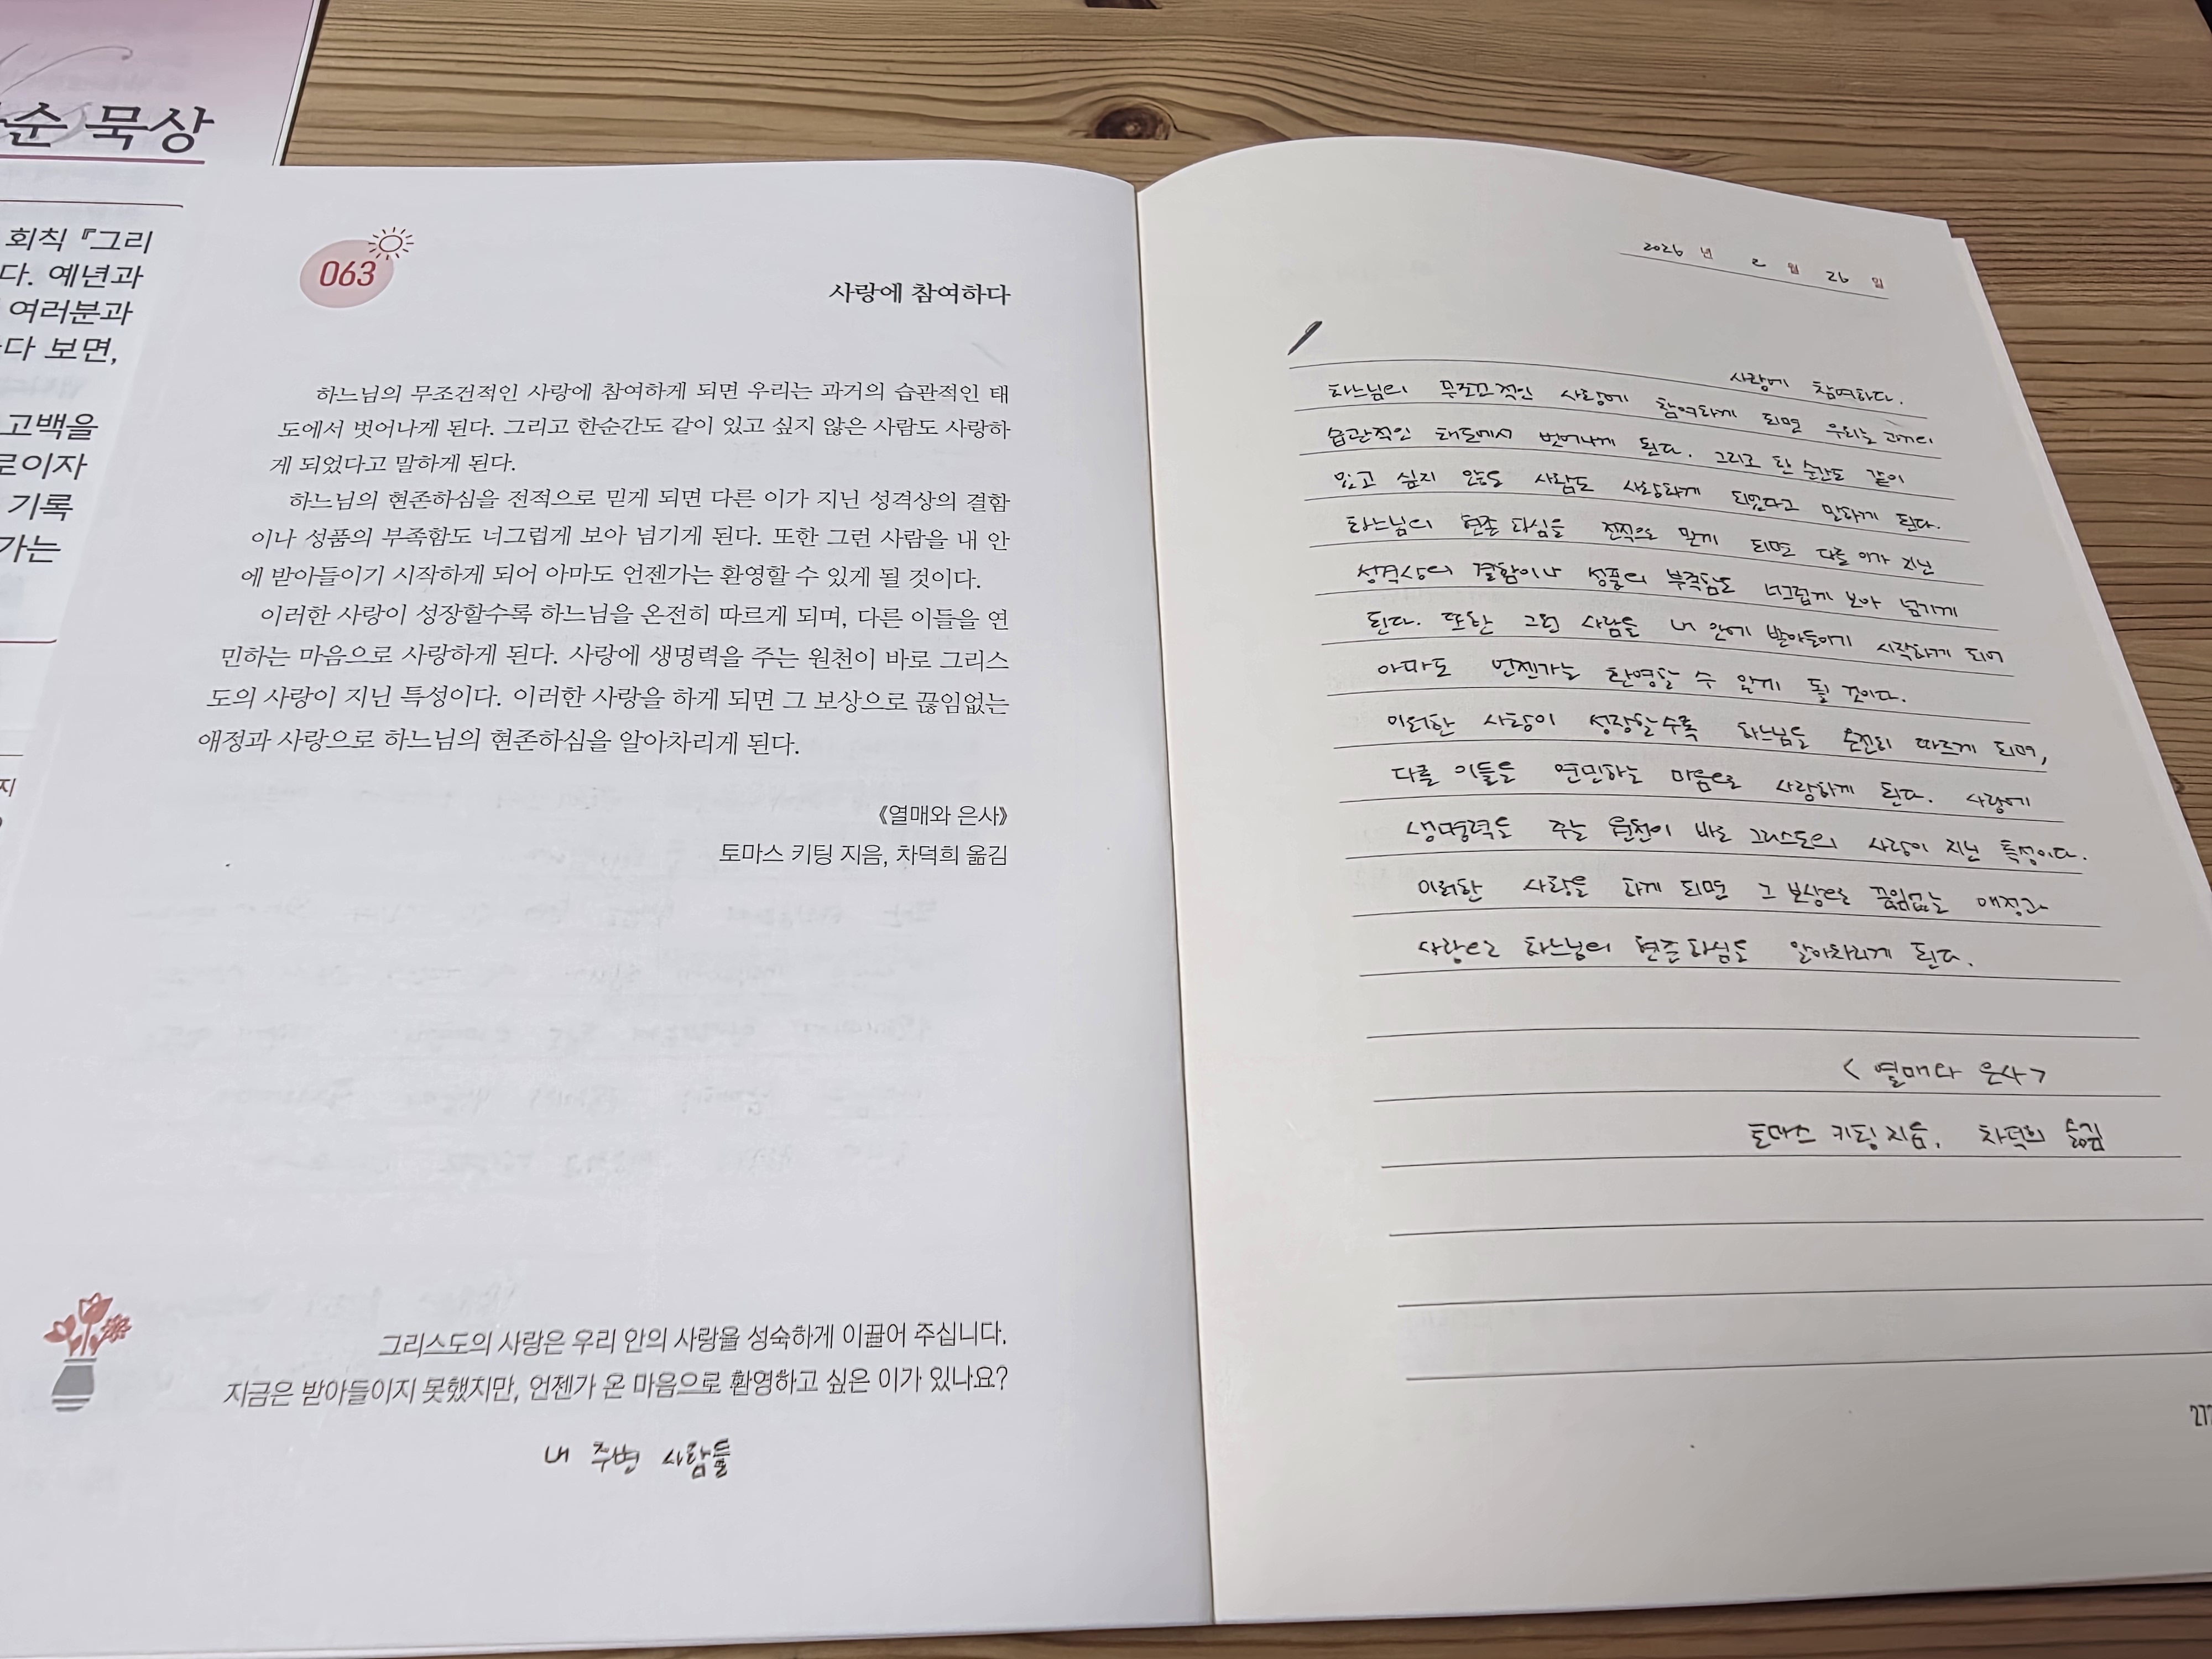 순 묵상
회칙 『그리
다. 예년과
여러분과
다 보면,
고백을
로이자
기록
가는
지
063
사랑에 참여하다
하느님의 무조건적인 사랑에 참여하게 되면 우리는 과거의 습관적인 태
도에서 벗어나게 된다. 그리고 한순간도 같이 있고 싶지 않은 사람도 사랑하
게 되었다고 말하게 된다.
하느님의 현존하심을 전적으로 믿게 되면 다른 이가 지닌 성격상의 결함
이나 성품의 부족함도 너그럽게 보아 넘기게 된다. 또한 그런 사람을 내 안
에 받아들이기 시작하게 되어 아마도 언젠가는 환영할 수 있게 될 것이다.
이러한 사랑이 성장할수록 하느님을 온전히 따르게 되며, 다른 이들을 연
민하는 마음으로 사랑하게 된다. 사랑에 생명력을 주는 원천이 바로 그리스
도의 사랑이 지닌 특성이다. 이러한 사랑을 하게 되면 그 보상으로 끊임없는
애정과 사랑으로 하느님의 현존하심을 알아차리게 된다.
《열매와 은사》
토마스 키팅 지음, 차덕희 옮김
그리스도의 사랑은 우리 안의 사랑을 성숙하게 이끌어 주십니다.
지금은 받아들이지 못했지만, 언젠가 온 마음으로 환영하고 싶은 이가 있나요?
내 주변 사람들
2026 년 2 월 26 일
사랑에 참여하다.
하느님의 무조건적인 사랑에 참여하게 되면 우리는 과거의
습관적인 태도에서 벗어나게 된다. 그리고 한 순간도 같이
있고 싶지 않은 사람도 사랑하게 되었다고 말하게 된다.
하느님의 현존하심을 전적으로 믿게 되면 다른 이가 지닌
성격상의 결함이나 성품의 부족함도 너그럽게 보아 넘기게
된다. 또한 그런 사람을 내 안에 받아들이기 시작하게 되어
아마도 언젠가는 환영할 수 있게 될 것이다.
이러한 사랑이 성장할수록 하느님을 온전히 따르게 되며,
다른 이들을 연민하는 마음으로 사랑하게 된다. 사랑에
생명력을 주는 원천이 바로 그리스도의 사랑이 지닌 특성이다.
이러한 사랑을 하게 되면 그 보상으로 끊임없는 애정과
사랑으로 하느님의 현존하심을 알아차리게 된다.
<열매와 은사>
토마스 키팅 지음, 차덕희 옮김